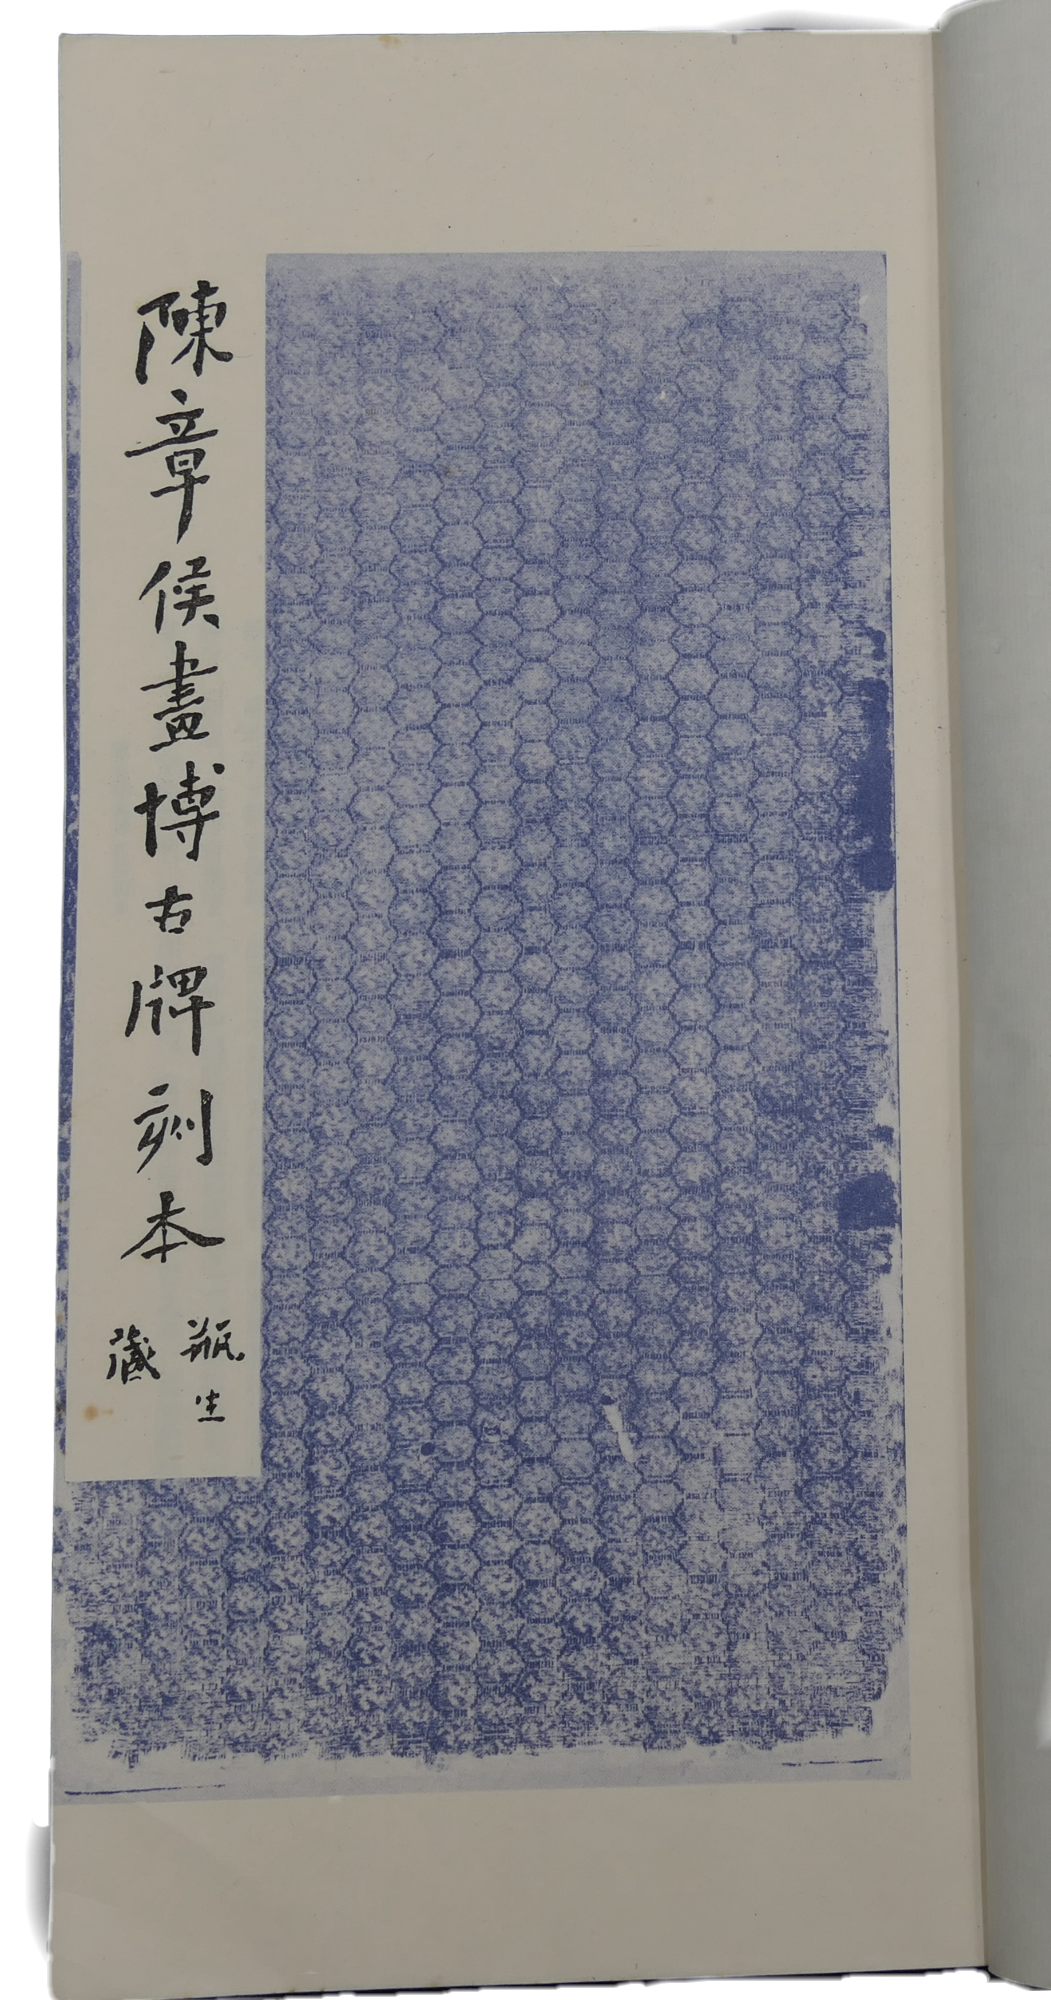 陳章侯畫博古牌刻本
瓶生
藏